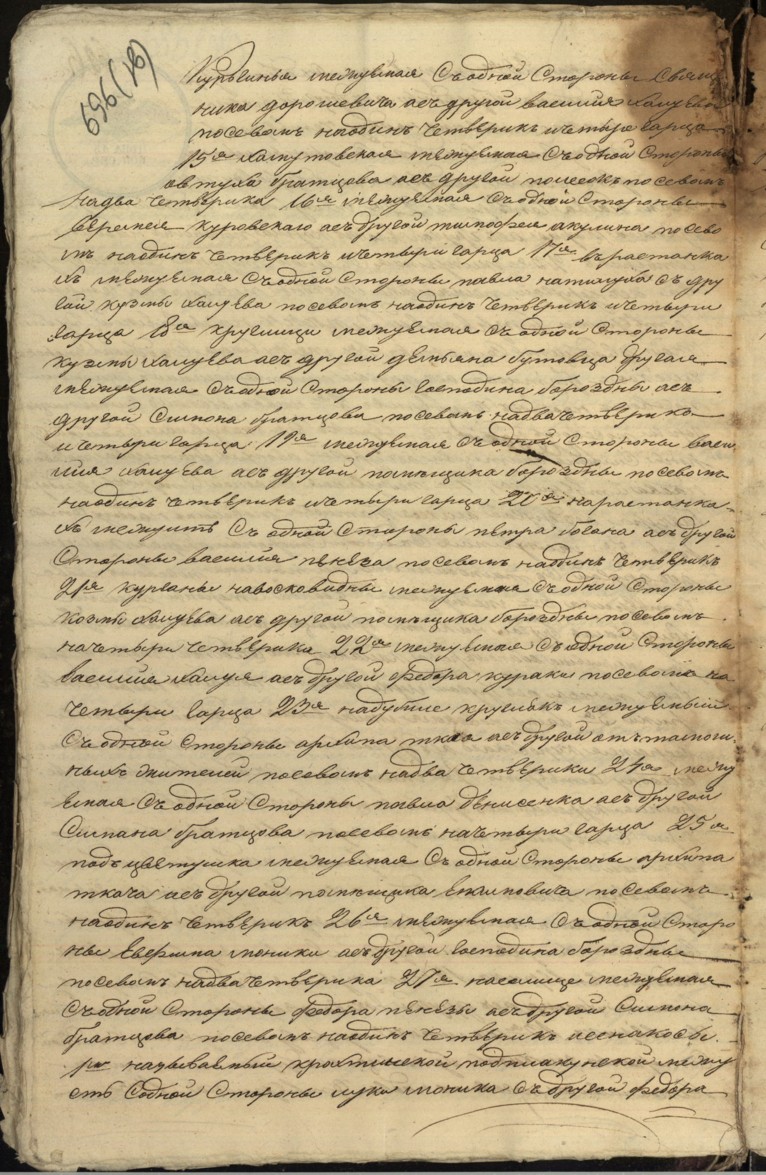 696 (16)
межуемая съ одной стороны свяще
ника дорошевича а съ другой василия халуева
посевомъ на одинъ четверикъ и четыре гарца
15я хомутовская межуемая съ одной стороны
братцова а съ другой посевомъ
на два четверика 16я межуемая съ одной стороны
куровскаго а съ другой тимофея акулина посево
мъ на одинъ четверикъ и четыри гарца 17я въ растанка
хъ межуемая съ одной стороны павла съ дру
гой кузмы халуева посевомъ на одинъ четверикъ и четыри
гарца 18я круглици межуемая съ одной стороны
кузмы халуева а съ другой демьяна бутовца другая
межуемая съ одной стороны господина борозны а съ
другой симона братцова посевомъ на два четверика
и четыри гарца 19я межуемая съ одной стороны васи
лия халуева а съ другой помещика борозны посевомъ
на одинъ четверикъ и четыри гарца 20я на растанка
хъ межуить съ одной стороны петра а съ другой
стороны василия пенеза посевомъ на одинъ четверикъ
21я курганы межуемая съ одной стороны
козмы халуева а съ другой помещика борозны посевомъ
на четыри четверика 22я межуемая съ одной стороны
василия халуя а съ другой федора кураки посевомъ на
четыри гарца 23я круглякъ межуемый
съ одной стороны архипа ткача а съ другой
жителей посевомъ на два четверики 24я межу
емая съ одной стороны павла денисенка а съ другой
симана братцова посевомъ на четыри гарца 25я
подъ межуемая съ одной стороны архипа
ткача а съ другой помещика посевомъ
на одинъ четверикъ 26я межуемая съ одной сторо
ны моники а съ другой господина борозны
посевомъ на два четверика 27я на селище межуемая
съ одной стороны федора пенезы а съ другой симона
братцова посевомъ на одинъ четверикъ а сенакосы
1й называемый межу
еть с одной стороны луки моника съ другой федора